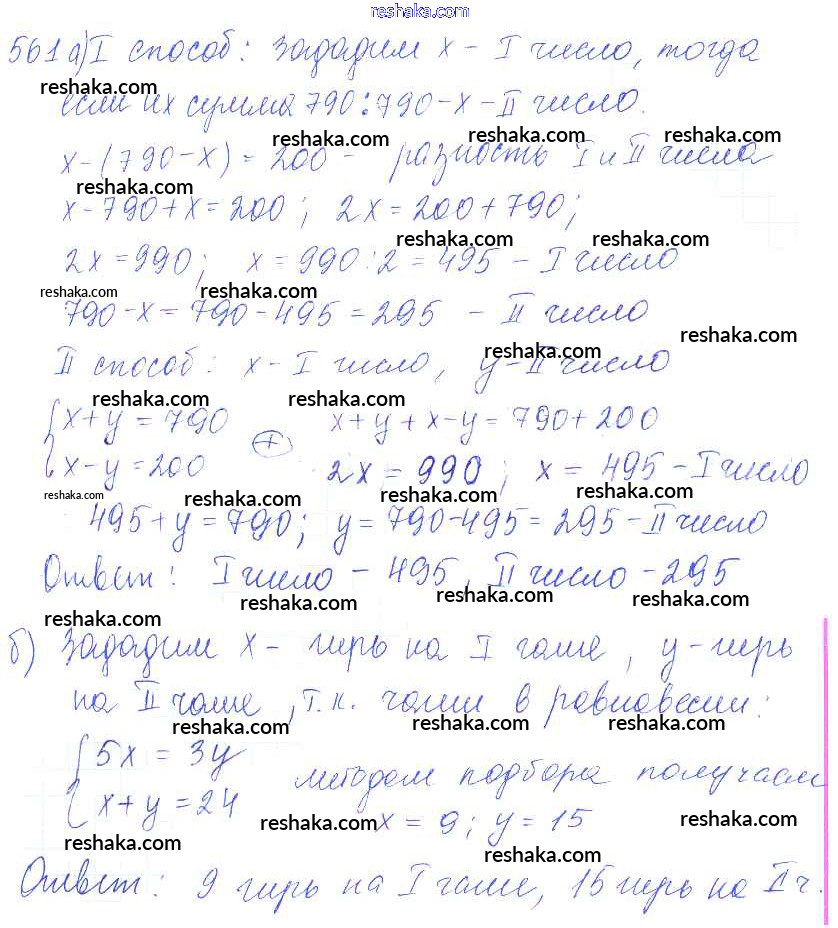 reshaka.com
561 а) I способ: зададим x - I число, тогда
reshaka.com
если их сумма 790: 790-x - II число.
reshaka.com reshaka.com reshaka.com
x-(790-x) = 200 - разность I и II числа
reshaka.com
x-790+x = 200; 2x = 200+790;
reshaka.com reshaka.com
2x = 990; x = 990:2 = 495 - I число
reshaka.com reshaka.com
790-x = 790-495 = 295 - II число
reshaka.com
II способ: x - I число, y - II число
reshaka.com
reshaka.com reshaka.com
x+y = 790 (+) x+y+x-y = 790+200
x-y = 200 2x = 990; x = 495 - I число
reshaka.com reshaka.com reshaka.com reshaka.com
495+y = 790; y = 790-495 = 295 - II число
reshaka.com reshaka.com
Ответ: I число - 495, II число - 295
reshaka.com reshaka.com reshaka.com reshaka.com
б) Зададим x - гирь на I чаше, y - гирь
reshaka.com
на II чаше, т.к. чаши в равновесии:
reshaka.com reshaka.com reshaka.com
5x = 3y методом подбора получаем
x+y = 24 x = 9; y = 15
reshaka.com reshaka.com reshaka.com
reshaka.com
Ответ: 9 гирь на I чаше, 15 гирь на II ч.